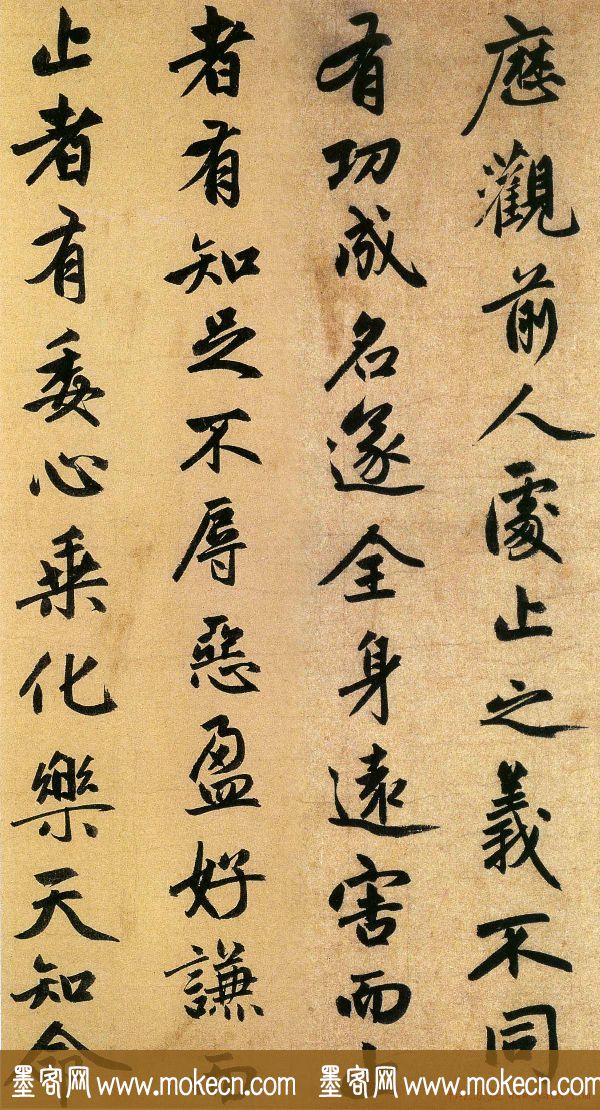 歷觀前人處止之義不同
有功成名遂全身遠害而
者有知足不辱惡盈好謙而
止者有委心乘化樂天知命
墨客网 www.mokecn.com 墨客网 www.mokecn.com